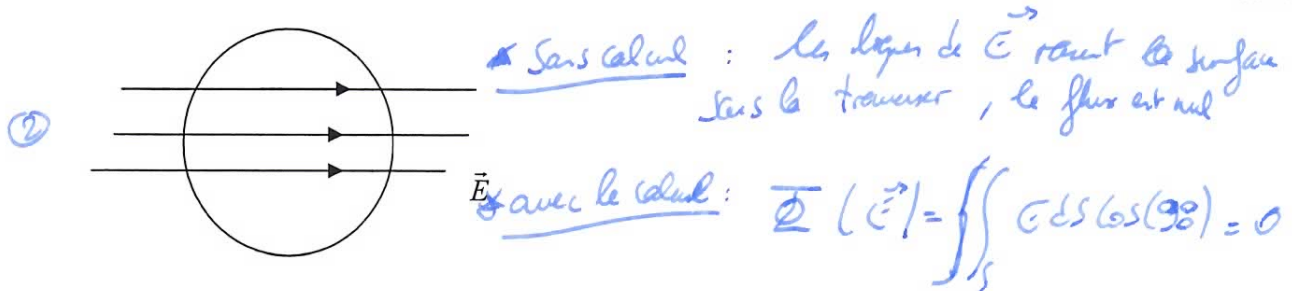 ②
* Sans calcul : les lignes de E⃗ rasent la surface
sans la traverser, le flux est nul
E⃗
* avec le calcul : Φ (E⃗) = ∬_S E dS cos(90) = 0